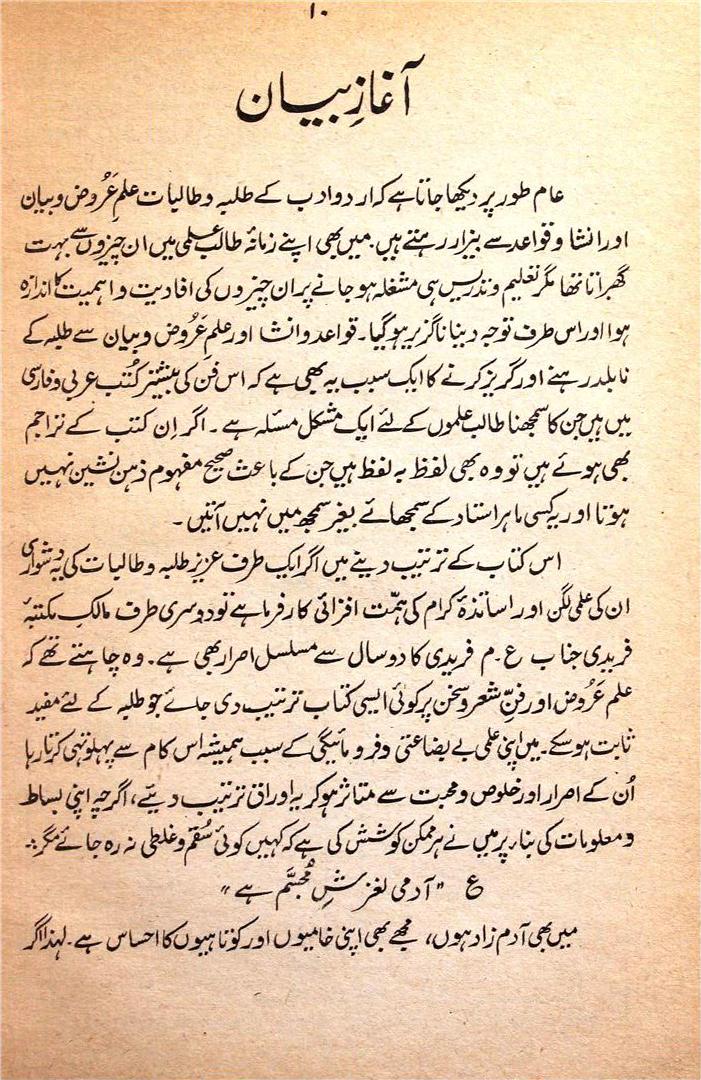 ۱۰
آغازِ بیان
عام طور پر دیکھا جاتا ہے کہ اردو ادب کے طلبہ و طالبات علمِ عَرُوض و بیان
اور انشا و قواعد سے بیزار رہتے ہیں۔ میں بھی اپنے زمانۂ طالب علمی میں ان چیزوں سے بہت
گھبراتا تھا مگر تعلیم و تدریس ہی مشغلہ ہو جانے پر ان چیزوں کی افادیت و اہمیت کا اندازہ
ہوا اور اس طرف توجہ دینا ناگزیر ہو گیا۔ قواعد و انشا اور علمِ عَرُوض و بیان سے طلبہ کے
نابلد رہنے اور گریز کرنے کا ایک سبب یہ بھی ہے کہ اس فن کی بیشتر کُتب عربی و فارسی
میں ہیں جن کا سمجھنا طالب علموں کے لئے ایک مشکل مسئلہ ہے۔ اگر اِن کتب کے تراجم
بھی ہوئے ہیں تو وہ بھی لفظ بہ لفظ ہیں جن کے باعث صحیح مفہوم ذہن نشین نہیں
ہوتا اور یہ کسی ماہر استاد کے سمجھائے بغیر سمجھ میں نہیں آتیں۔
اس کتاب کے ترتیب دینے میں اگر ایک طرف عزیز طلبہ و طالبات کی یہ دشواری
ان کی علمی لگن اور اساتذۂ کرام کی ہمّت افزائی کارفرما ہے تو دوسری طرف مالکِ مکتبۂ
فریدی جناب ع۔م فریدی کا دو سال سے مسلسل اصرار بھی ہے۔ وہ چاہتے تھے کہ
علم عَرُوض اور فنِّ شعر و سخن پر کوئی ایسی کتاب ترتیب دی جائے جو طلبہ کے لئے مفید
ثابت ہو سکے۔ میں اپنی علمی بے بضاعتی و فرومائیگی کے سبب ہمیشہ اس کام سے پہلو تہی کرتا رہا
اُن کے اصرار اور خلوص و محبت سے متاثر ہو کر یہ اوراق ترتیب دیئے، اگرچہ اپنی بساط
و معلومات کی بناء پر میں نے ہر ممکن کوشش کی ہے کہ کہیں کوئی سُقم و غلطی نہ رہ جائے مگر :۔
ع "آدمی لغزشِ مُجسَّم ہے"
میں بھی آدم زاد ہوں، مجھے بھی اپنی خامیوں اور کوتاہیوں کا احساس ہے۔ لہٰذا اگر